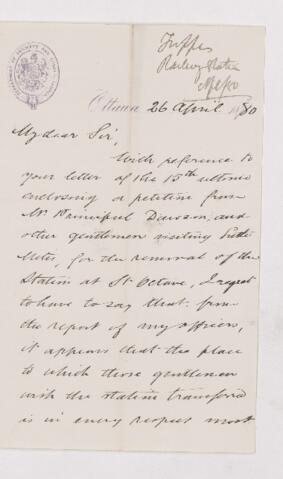 Railway Station
Ottawa 26 April 1880
My dear Sir,
With reference to
your letter of the 15th ultimo
enclosing a petition from
Mr. Principal Dawson, and
other gentlemen visiting Little
Metis, for the removal of the
Station at St. Octave, I regret
to have to say that from
the report of my officers,
it appears that the place
to which those gentlemen
wish the station transferred
is in every respect most